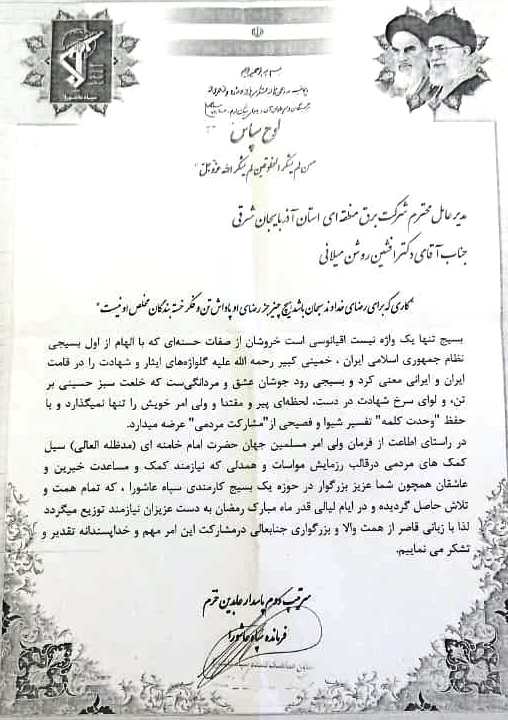 سپاه عاشورا
لوح سپاس
من لم یشکر المخلوقین لم یشکر الله عزوجل"
مدیرعامل محترم شرکت برق منطقه ای استان آذربایجان شرقی
جناب آقای دکتر افشین روشن میلانی
"کاری که برای رضای خداوند سبحان باشد هیچ چیز جز رضای او پاداش تن و فکر خسته بندگان مخلص او نیست"
بسیج تنها یک واژه نیست اقیانوسی است خروشان از صفات حسنه‌ای که با الهام از اول بسیجی
نظام جمهوری اسلامی ایران ، خمینی کبیر رحمه الله علیه گلواژه‌های ایثار و شهادت را در قامت
ایران و ایرانی معنی کرد و بسیجی رود جوشان عشق و مردانگی‌ست که خلعت سبز حسینی بر
تن، و لوای سرخ شهادت در دست، لحظه‌ای پیر و مقتدا و ولی امر خویش را تنها نمیگذارد و با
حفظ "وحدت کلمه" تفسیر شیوا و فصیحی از"مشارکت مردمی" عرضه میدارد.
در راستای اطاعت از فرمان ولی امر مسلمین جهان حضرت امام خامنه ای (مدظله العالی) سیل
کمک های مردمی درقالب رزمایش مواسات و همدلی که نیازمند کمک و مساعدت خیرین و
عاشقان همچون شما عزیز بزرگوار در حوزه یک بسیج کارمندی سپاه عاشورا ، که تمام همت و
تلاش حاصل گردیده و در ایام لیالی قدر ماه مبارک رمضان به دست عزیزان نیازمند توزیع میگردد
لذا با زبانی قاصر از همت والا و بزرگواری جنابعالی درمشارکت این امر مهم و خداپسندانه تقدیر و
تشکر می نماییم.
سرتیپ دوم پاسدار عابدین خرم
فرمانده سپاه عاشورا